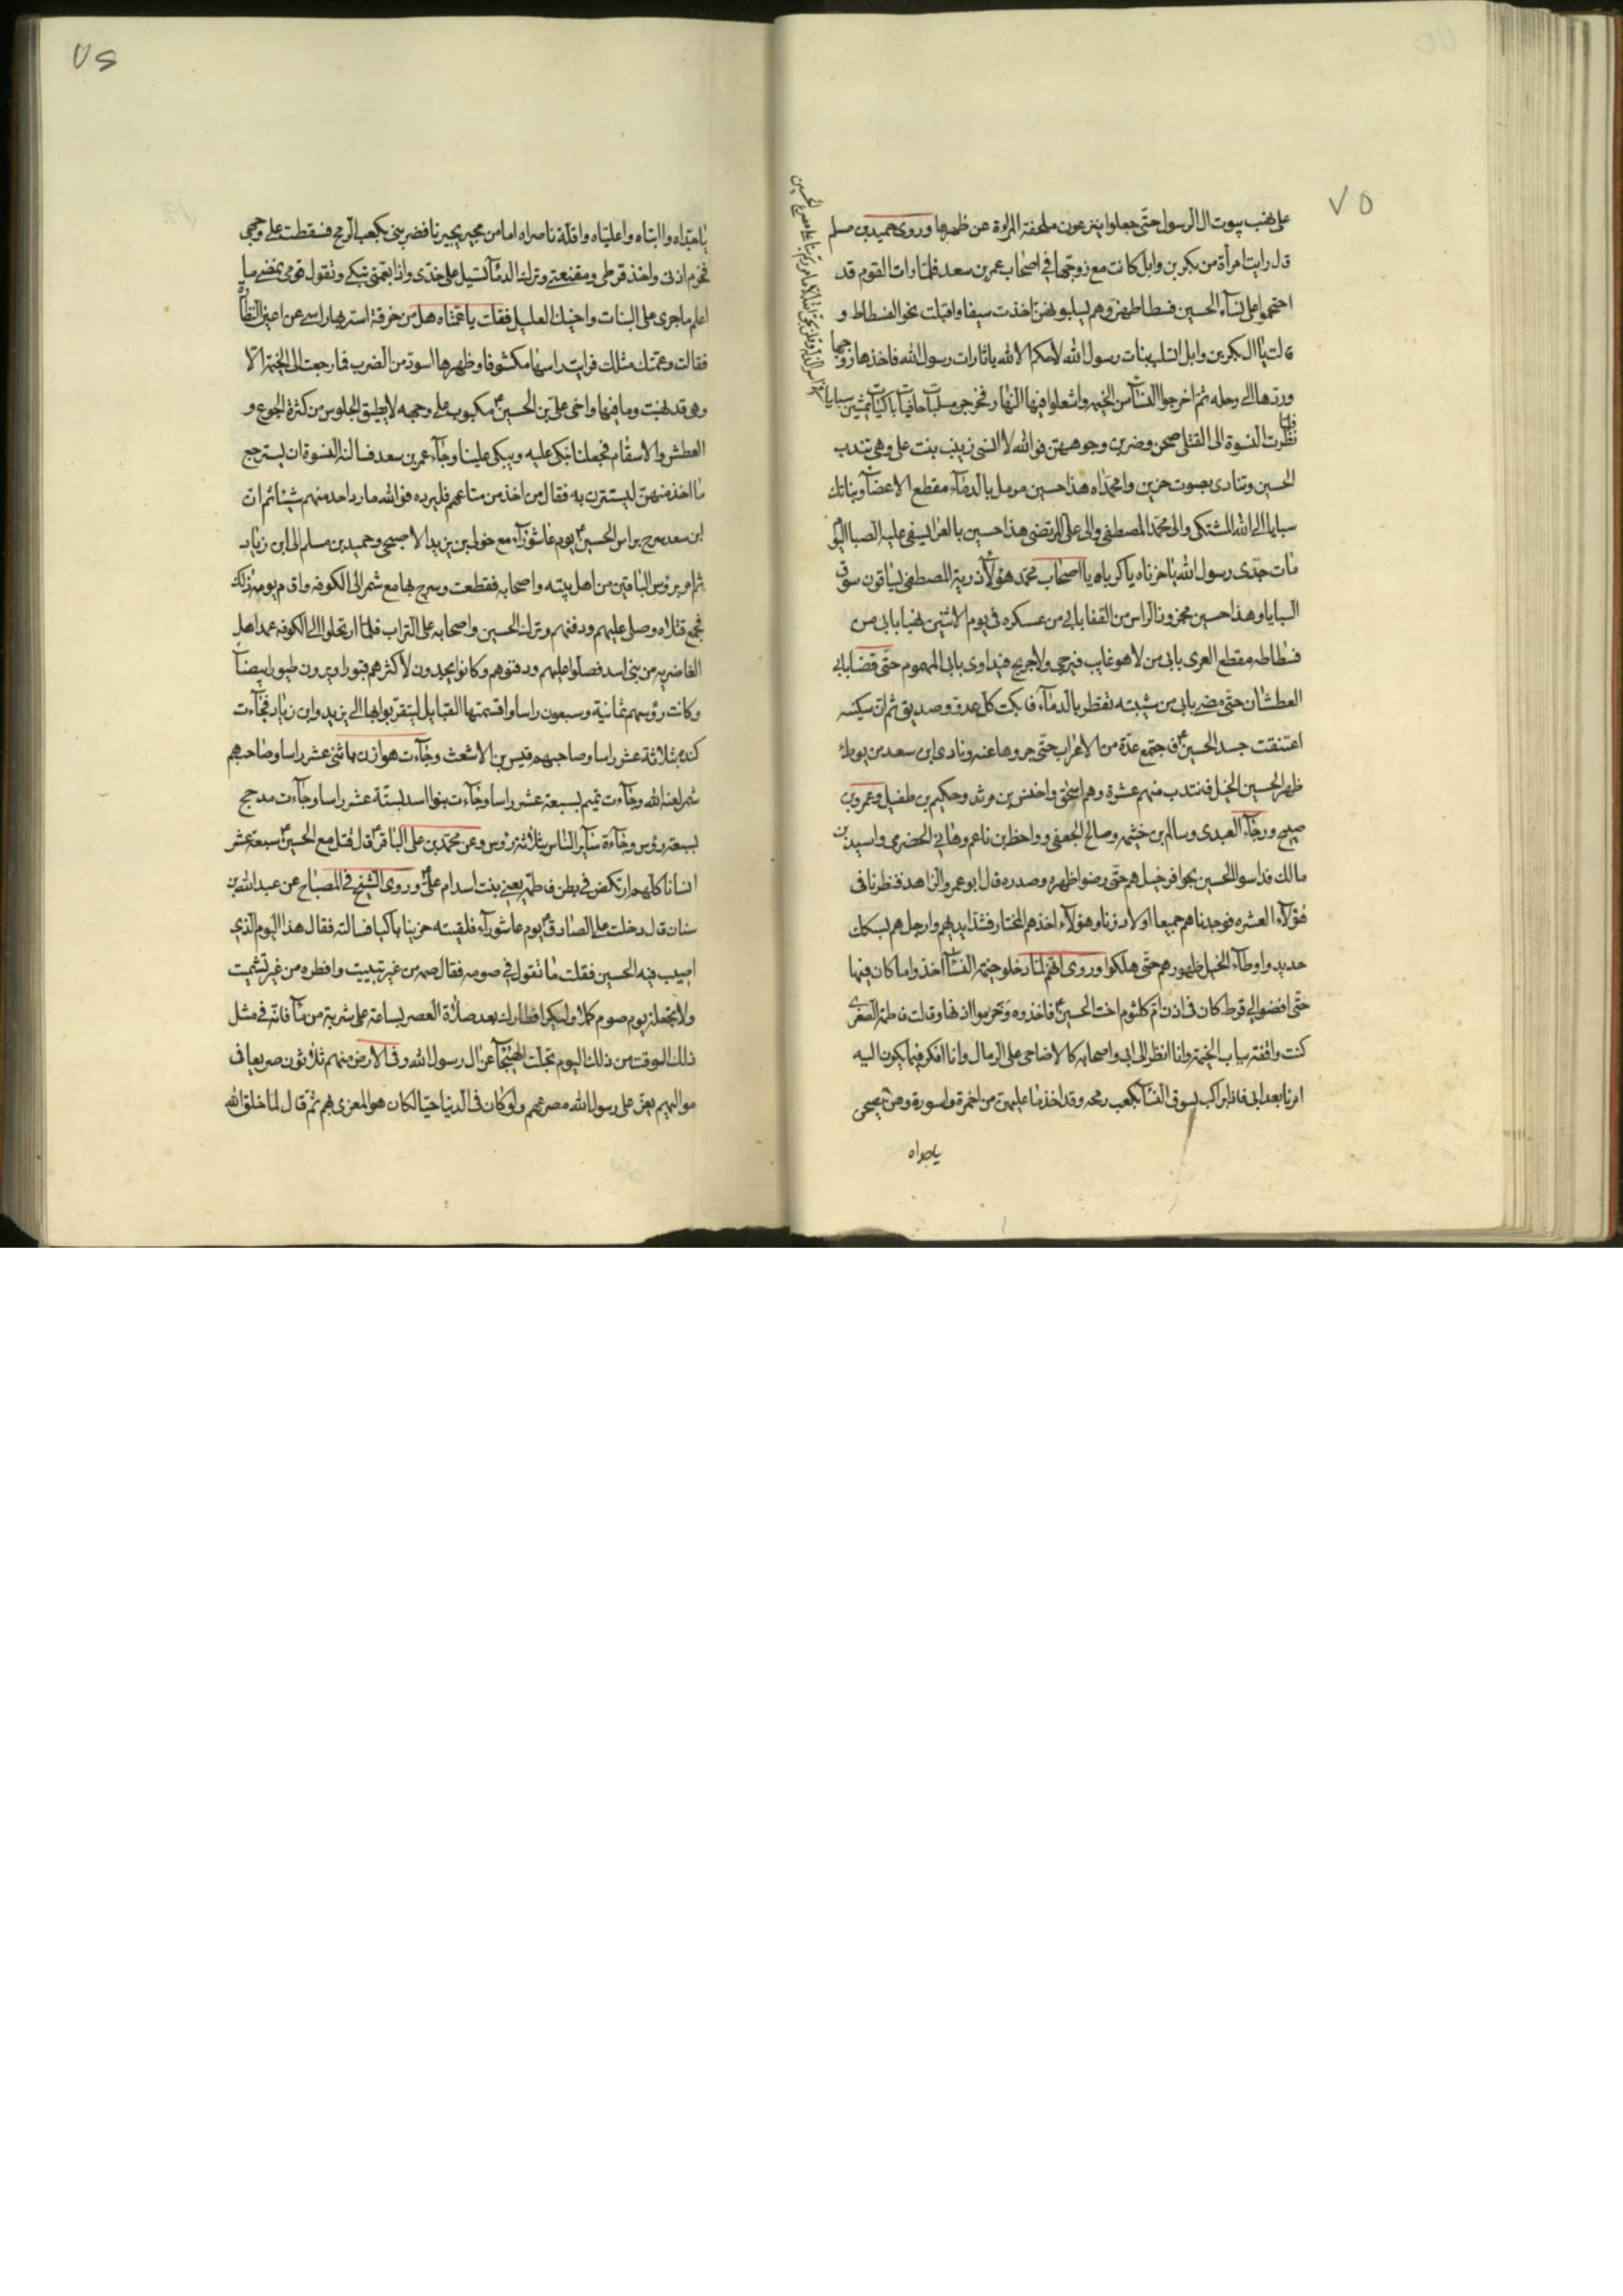 ٧٥
على نهب بيوت ال الرسول حتى جعلوا ينزعون ملحفة المراءة عن ظهرها وروى حميد بن مسلم
قال رايت امرأة من بكر بن وابل كانت مع زوجها في اصحاب عمر بن سعد فلما رات القوم قد
اقتحموا على نسآء الحسين فسطاطهن وهم يسلبونهن اخذت سيفا واقبلت نحو الفسطاط و
قالت يا ال بكر بن وابل اتسلب بنات رسول الله لا حكم الا لله يا ثارات رسول الله فاخذها زوجها
وردها الى رحله ثم اخرجوا النسآء من الخيمه واشعلوا فيها النار فخرجن مسلبات حافيات باكيات يمشين سبايا
فلما نظرت النسوة الى القتلى صحن وضربن وجوههن فوالله لا انسى زينب بنت على وهى تندب
الحسين وتنادى بصوت حزين وامحمداه هذا حسين مرمل بالدمآء مقطع الاعضآء وبناتك
سبايا الى الله المشتكى والى محمد المصطفى والى على المرتضى هذا حسين بالعرا يسفى عليه الصبا اليوم
مات جدى رسول الله يا حزناه يا كرباه يا اصحاب محمد هؤلآء ذرية المصطفى يساقون سوق
السبايا وهذا حسين محزوز الراس من القفا بابى من عسكره فى يوم الاثنين نهبا بابى من
فسطاطه مقطع العرى بابى من لا هو غايب فيرجى ولا جريح فيداوى بابى المهموم حتى قضا بابى
العطشان حتى مضى بابى من شيبته تقطر بالدمآء فابكت كل عدو وصديق ثم ان سكينه
اعتنقت جسد الحسين فاجتمع عدة من الاعراب حتى جروها عنه ونادى ابن سعد من يوطئ
ظهر الحسين الخيل فانتدب منهم عشرة وهم اسحق واخنس بن مرثد وحكيم بن طفيل وعمرو بن
صبيح ورجآء العبدى وسالم بن خيثمه وصالح الجعفى وواحظ بن ناعم وهانى الحضرمى واسيد بن
مالك فداسوا الحسين بحوافر خيلهم حتى رضوا ظهره وصدره قال ابو عمرو الزاهد فنظرنا فى
هؤلآء العشره فوجدناهم جميعا اولاد زنا وهؤلآء اخذهم المختار فشد ايديهم وارجلهم بسكك
حديد واوطاء الخيل ظهورهم حتى هلكوا وروى انهم لما دخلوا خيمة النسآء اخذوا ما كان فيها
حتى افضوا الى قرط كان فى اذن ام كلثوم اخت الحسين فاخذوه وخرموا اذنها وقالت فاطمة الصغرى
كنت واقفة بباب الخيمة وانا انظر الى ابى واصحابه كالاضاحى على الرمال وانا افكر فيما يكون اليه
امرنا بعد ابى فاذا براكب يسوق النسآء بكعب رمحه وقد اخذ ما عليهن من اخمرة واسورة وهن يصحن
ياجداه
٧٦
ياجداه واابتاه واعلياه واقلة ناصراه اما من مجير يجيرنا فضربنى بكعب الرمح فسقطت على وجهى
فخرم اذنى واخذ قرطى ومقنعتى وترك الدمآء تسيل على خدى واذا بعمتى تبكى وتقول قومى نمضى ما
اعلم ما جرى على البنات واخيك العليل فقلت يا عمتاه هل من خرقة استر بها راسى عن اعين النظاره
فقالت وعمتك مثلك فرايت راسها مكشوفا وظهرها اسود من الضرب فما رجعت الى الخيمة الا
وهى قد نهبت وما فيها واخى على بن الحسين مكبوب على وجهه لا يطيق الجلوس من كثرة الجوع و
العطش والاسقام فجعلنا نبكى عليه ويبكى علينا وجآء عمر بن سعد فسالنه النسوة ان يسترجع
ما اخذ منهن ليستترن به فقال من اخذ من متاعهم فليرده فوالله ما رد احد منهم شيئا ثم ان
ابن سعد سرح براس الحسين يوم عاشورآء مع خولى بن يزيد الاصبحى وحميد بن مسلم الى ابن زياد
ثم امر برؤس الباقين من اهل بيته واصحابه فقطعت وسرح بها مع شمر الى الكوفه واقام يومه ذلك
فجمع قتلاه وصلى عليهم ودفنهم وترك الحسين واصحابه على التراب فلما ارتحلوا الى الكوفه عمد اهل
الغاضريه من بنى اسد فصلوا عليهم ودفنوهم وكانوا يجدون لاكثرهم قبورا ويرون طيورا بيضآء
وكانت رؤسهم ثمانية وسبعون راسا واقتسمتها القبايل ليتقربوا بها الى يزيد وابن زياد فجآءت
كنده بثلاثة عشر راسا وصاحبهم قيس بن الاشعث وجآءت هوازن باثنى عشر راسا وصاحبهم
شمر لعنه الله وجآءت تميم بسبعة عشر راسا وجآءت بنوا اسد بستة عشر راسا وجآءت مدحج
بسبعة رؤس وجآءة ساير الناس بثلاثة رؤس وعن محمد بن على الباقر قال قتل مع الحسين سبعة عشر
انسانا كلهم ارتكض فى بطن فاطمة يعنى بنت اسد ام على وروى الشيخ فى المصباح عن عبد الله بن
سنان قال دخلت على الصادق يوم عاشورآء فلقيته حزينا باكيا فسالته فقال هذا اليوم الذى
اصيب فيه الحسين فقلت ما تقول فى صومه فقال صمه من غير تبييت وافطره من غير تشميت
ولا تجعله يوم صوم كملا وليكن افطارك بعد صلاة العصر بساعة على شربة من مآء فانه فى مثل
ذلك الوقت من ذلك اليوم تجلت الهيجآء عن ال رسول الله وفى الارض منهم ثلاثون صريعا فى
مواليهم يعز على رسول الله مصرعهم ولو كان فى الدنيا حيا لكان هو المعزى بهم ثم قال لما خلق الله